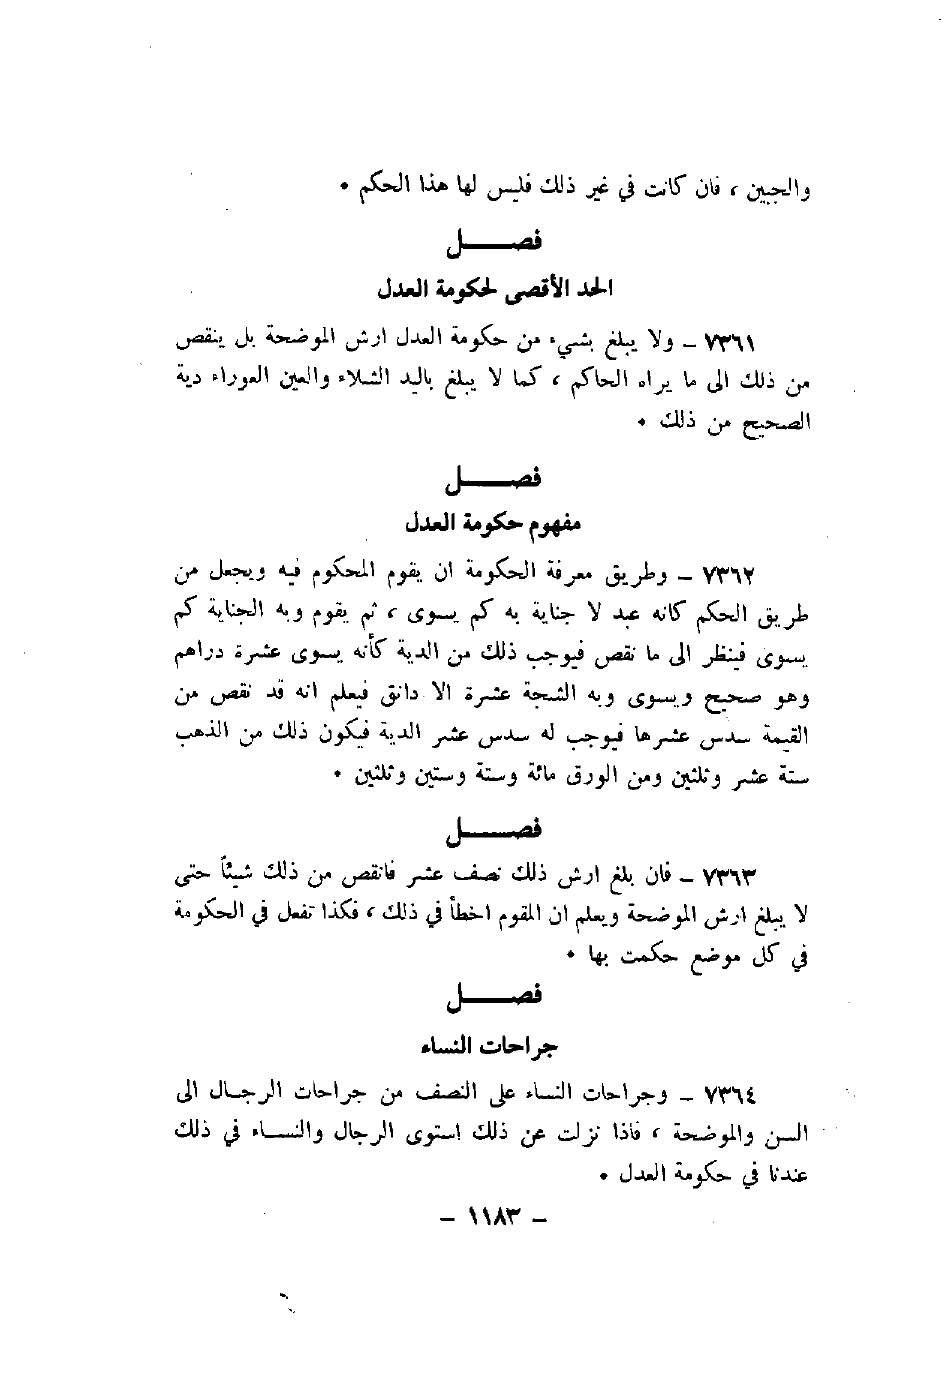 والجبين ، فان كانت في غير ذلك فليس لها هذا الحكم .
فصـــــل
الحد الأقصى لحكومة العدل
٧٣٦١ ـ ولا يبلغ بشيء من حكومة العدل ارش الموضحة بل ينقص
من ذلك الى ما يراه الحاكم ، كما لا يبلغ باليد الشلاء والعين العوراء دية
الصحيح من ذلك .
فصـــــل
مفهوم حكومة العدل
٧٣٦٢ ـ وطريق معرفة الحكومة ان يقوم المحكوم فيه ويجعل من
طريق الحكم كانه عبد لا جناية به كم يسوى ، ثم يقوم وبه الجناية كم
يسوى فينظر الى ما نقص فيوجب ذلك من الدية كأنه يسوى عشرة دراهم
وهو صحيح ويسوى وبه الشجة عشرة الا دانق فيعلم انه قد نقص من
القيمة سدس عشرها فيوجب له سدس عشر الدية فيكون ذلك من الذهب
ستة عشر وثلثين ومن الورق مائة وستة وستين وثلثين .
فصـــــل
٧٣٦٣ ـ فان بلغ ارش ذلك نصف عشر فانقص من ذلك شيئاً حتى
لا يبلغ ارش الموضحة ويعلم ان المقوم اخطأ في ذلك ، فكذا تفعل في الحكومة
في كل موضع حكمت بها .
فصـــــل
جراحات النساء
٧٣٦٤ ـ وجراحات النساء على النصف من جراحات الرجـال الى
الســن والموضحة ، فاذا نزلت عن ذلك استوى الرجال والنســاء في ذلك
عندنا في حكومة العدل .
ـ ١١٨٣ ـ